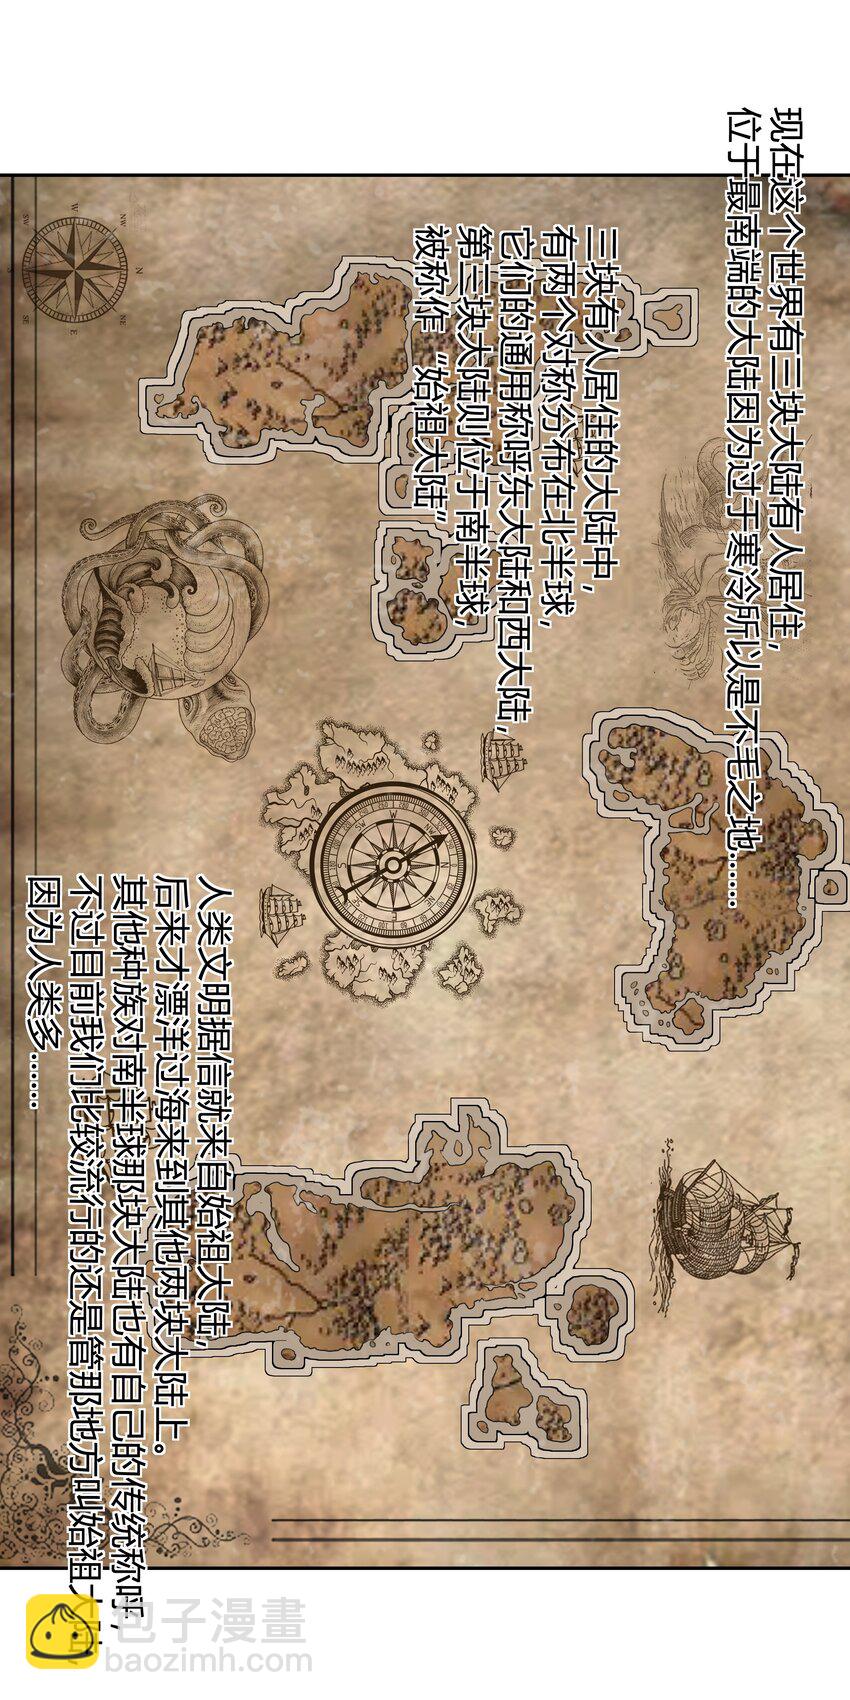 现在这个世界有三块大陆有人居住，
位于最南端的大陆因为过于寒冷所以是不毛之地……
三块有人居住的大陆中，
有两个对称分布在北半球，
它们的通用称呼东大陆和西大陆，
第三块大陆则位于南半球，
被称作“始祖大陆”
人类文明据信就来自始祖大陆，
后来才漂洋过海来到其他两块大陆上。
其他种族对南半球那块大陆也有自己的传统称呼，
不过目前我们比较流行的还是管那地方叫始祖大陆
因为人类多……
W
NW
N
NE
E
SE
S
SW
包子漫畫
baozimh.com